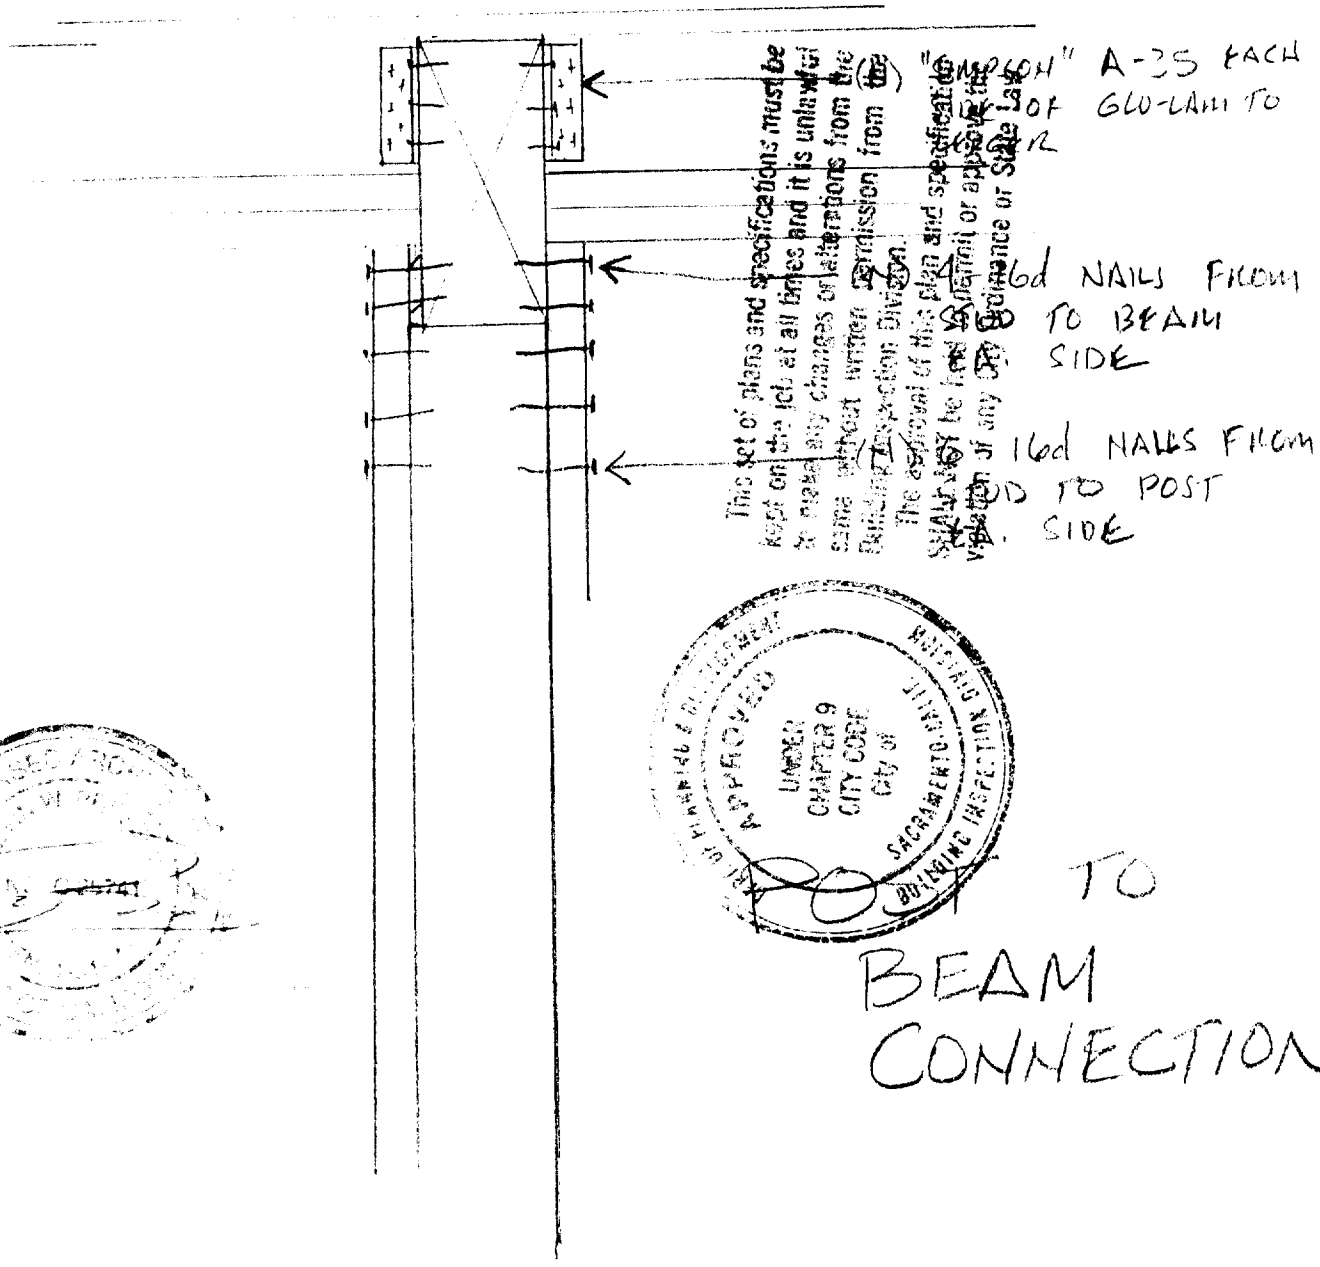 "SIMPSON" A-35 EACH
OF GLU-LAM TO
16d NAILS FROM
STUD TO BEAM
EA. SIDE
16d NAILS FROM
STUD TO POST
EA. SIDE
This set of plans and specifications must be
kept on the job at all times and it is unlawful
to make any changes or alterations from the
same without written permission from the
Building Inspection Division.
The approval of this plan and specification
SHALL NOT be held to permit or approve the
violation of any City Ordinance or State Law.
PLANNING & DEVELOPMENT
BUILDING INSPECTION DIVISION
APPROVED
UNDER
CHAPTER 9
CITY CODE
City of
SACRAMENTO CALIF
POST TO
BEAM
CONNECTION